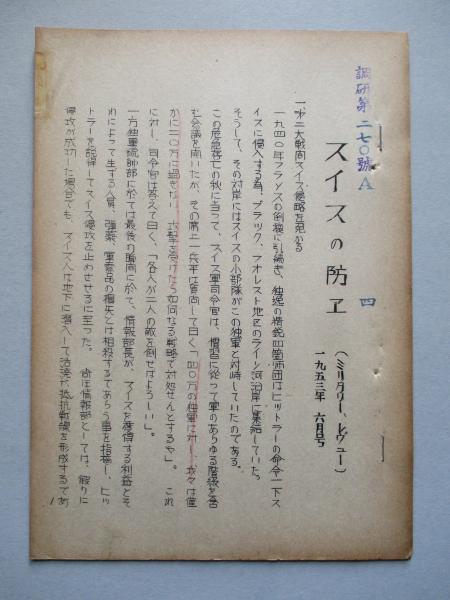 調研第二七〇號A
四
スイスの防卫
(ミリタリー、レヴュー)
一九五三年 六月号
一、才二大戦間スイス侵略を免かる
一九四〇年フランスの倒壊に引続き、独逸の精鋭四箇師団はヒットラーの命令一下ス
イスに侵入する為、ブラック、フオレスト地区のライン河沿岸に集結していた。
そうして、その対岸にはスイスの小部隊がこの独軍と対峙していたのである。
この危急存亡の秋に当って、スイス軍司令官は、慣習に従って軍のあらゆる階級を含
む会議を開いたが、その席上一兵卒は質問して曰く「四〇万の独軍に対し、我々は僅
かに二〇万に過ぎない、攻撃を受けたら如何なる戦略で対処せんとするや」。 これ
に対し、司令官は答えて曰く、「各人が二人の敵を倒せばよろしい」。
一方独軍統帥部に於ては最後の瞬間に於て、情報部長が、スイスを獲得する利益とそ
れによって生する人員、弾薬、軍需品の損失とは相殺するであらう事を指摘し、ヒッ
トラーを説得してスイス侵攻を止めさせるに至った。 当任情報部としては、假りに
侵攻が成功した場合でも、スイス人は地下に潜入して活溌な抵抗戦線を形成するであ
1